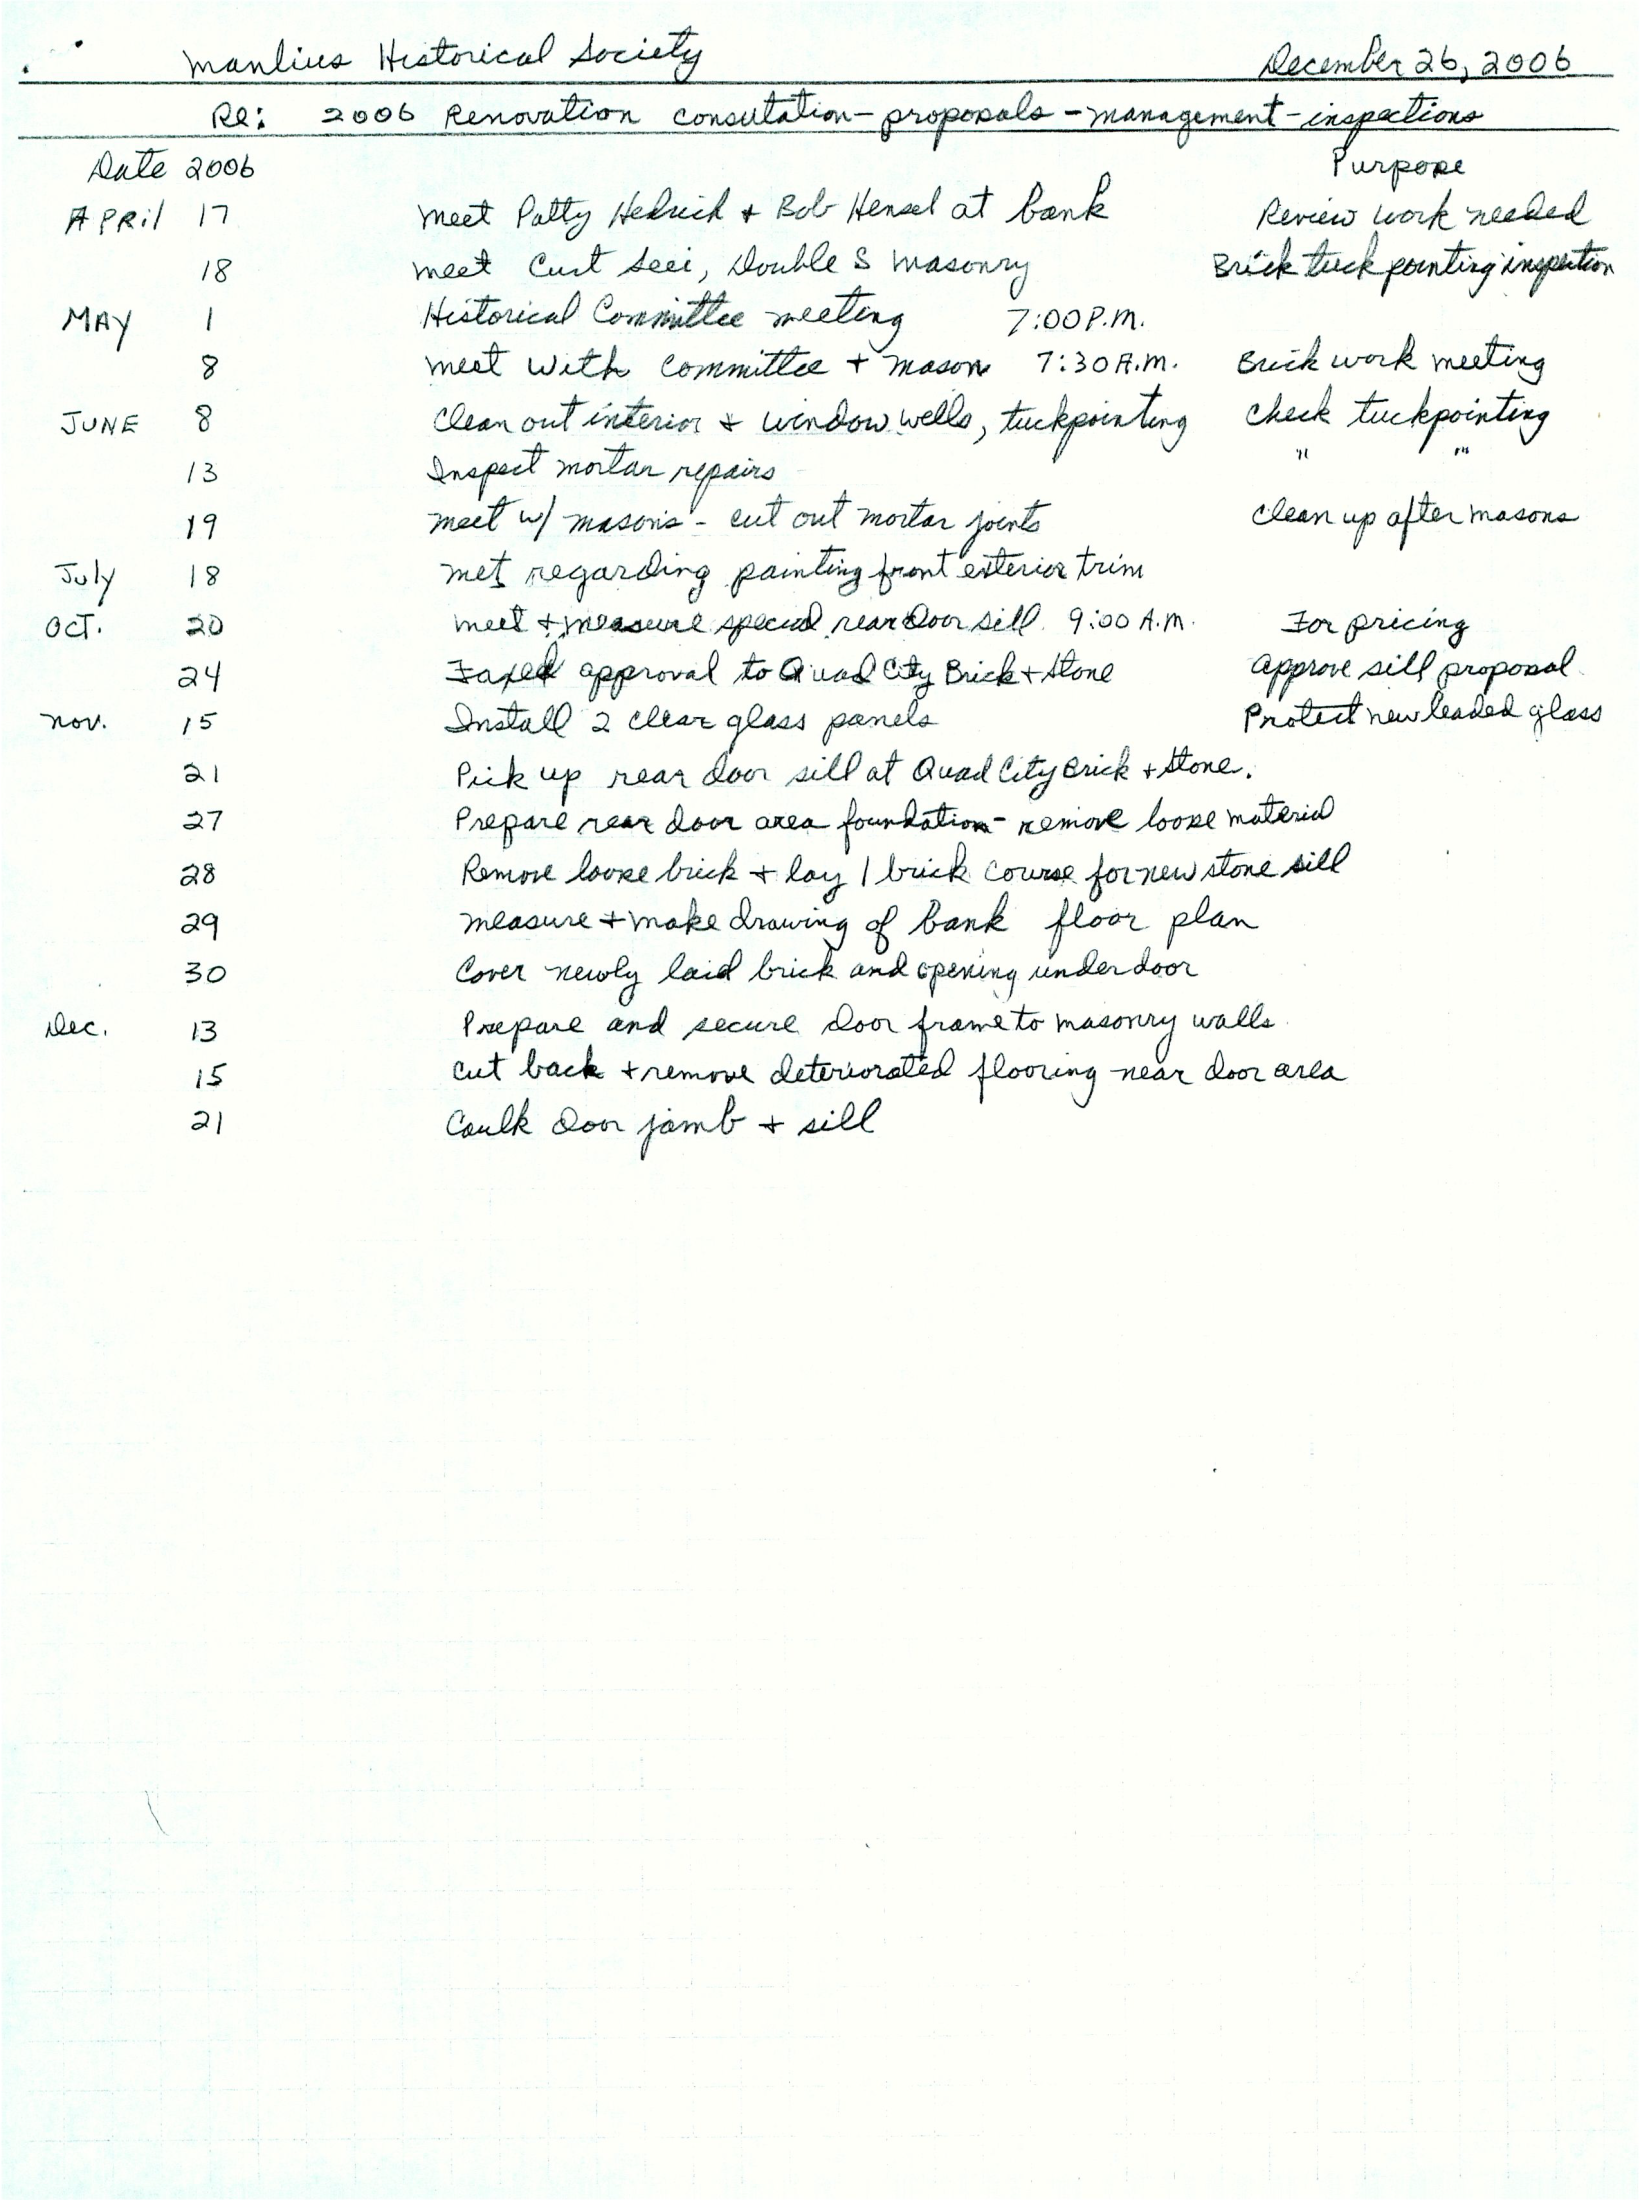 Manlius Historical Society December 26, 2006
Re: 2006 Renovation consultation - proposals - management - inspections
Date 2006 Purpose
APRil 17 meet Patty Hedrick + Bob Hensel at bank Review work needed
18 meet Curt Seei, Double S Masonry Brick tuck pointing inspection
MAY 1 Historical Committee meeting 7:00 P.M.
8 meet with committee + mason 7:30 A.M. Brick work meeting
JUNE 8 Clean out interior + window wells, tuckpointing Check tuckpointing
13 Inspect mortar repairs " "
19 meet w/ masons - cut out mortar joints Clean up after masons
July 18 met regarding painting front exterior trim
Oct. 20 meet + measure special rear door sill 9:00 A.M. For pricing
24 Faxed approval to Quad City Brick + Stone approve sill proposal
Nov. 15 Install 2 clear glass panels Protect new leaded glass
21 Pick up rear door sill at Quad City Brick + Stone.
27 Prepare rear door area foundation - remove loose material
28 Remove loose brick + lay 1 brick course for new stone sill
29 measure + make drawing of bank floor plan
30 Cover newly laid brick and opening under door
Dec. 13 Prepare and secure door frame to masonry walls
15 cut back + remove deteriorated flooring near door area
21 Caulk door jamb + sill